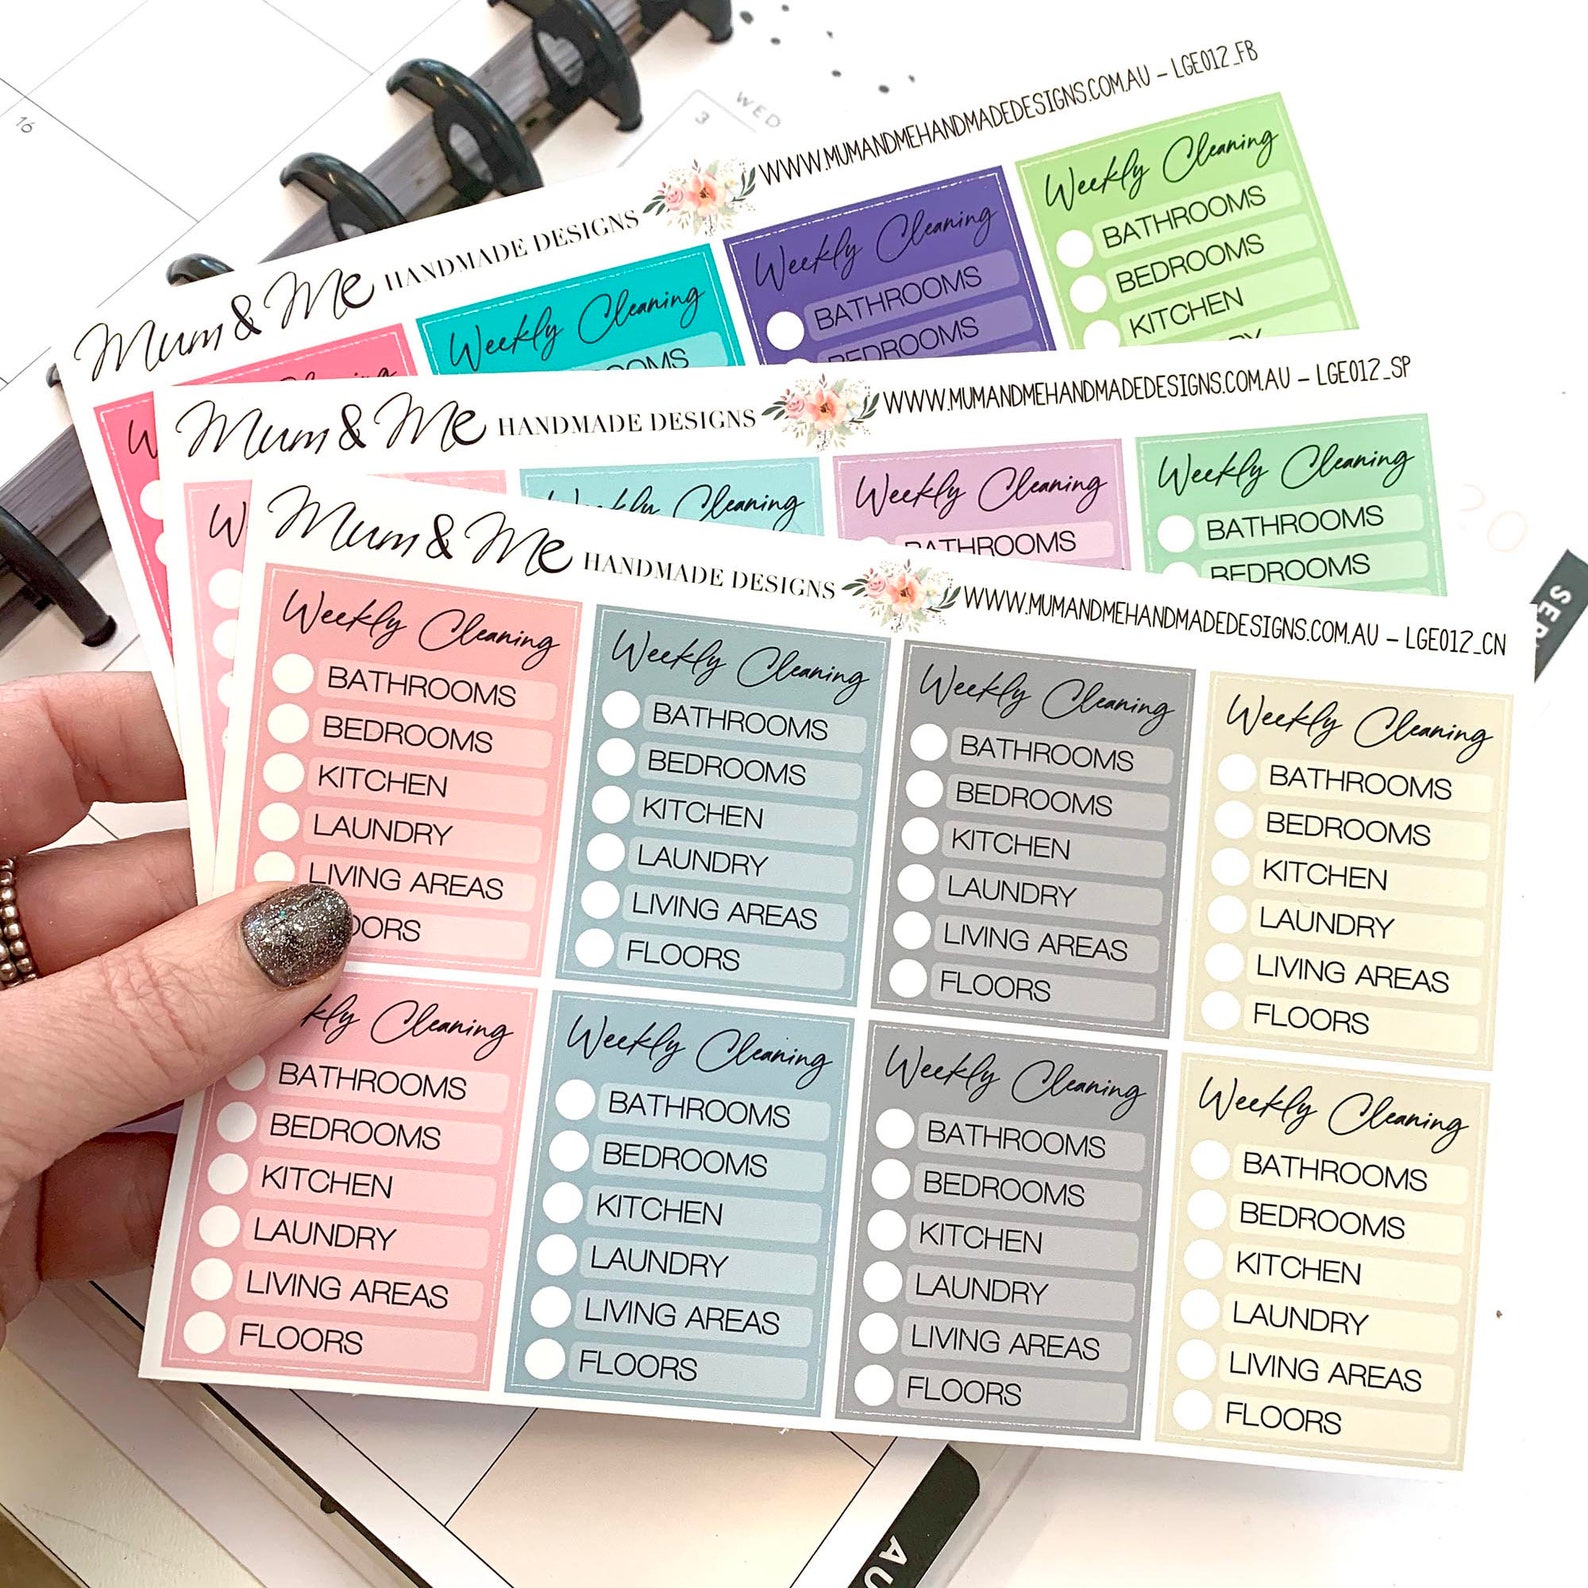 16
WED
3
Mum & Me HANDMADE DESIGNS WWW.MUMANDMEHANDMADEDESIGNS.COM.AU - LGE012_FB
Cleaning
Weekly Cleaning
Weekly Cleaning
BATHROOMS
BEDROOMS
Weekly Cleaning
BATHROOMS
BEDROOMS
KITCHEN
Mum & Me HANDMADE DESIGNS WWW.MUMANDMEHANDMADEDESIGNS.COM.AU - LGE012_SP
Weekly Cleaning
Weekly Cleaning
BATHROOMS
Weekly Cleaning
BATHROOMS
BEDROOMS
Mum & Me HANDMADE DESIGNS WWW.MUMANDMEHANDMADEDESIGNS.COM.AU - LGE012_CN
Weekly Cleaning
BATHROOMS
BEDROOMS
KITCHEN
LAUNDRY
LIVING AREAS
Weekly Cleaning
BATHROOMS
BEDROOMS
KITCHEN
LAUNDRY
LIVING AREAS
FLOORS
Weekly Cleaning
BATHROOMS
BEDROOMS
KITCHEN
LAUNDRY
LIVING AREAS
FLOORS
Weekly Cleaning
BATHROOMS
BEDROOMS
KITCHEN
LAUNDRY
LIVING AREAS
FLOORS
Cleaning
BATHROOMS
BEDROOMS
KITCHEN
LAUNDRY
LIVING AREAS
FLOORS
Weekly Cleaning
BATHROOMS
BEDROOMS
KITCHEN
LAUNDRY
LIVING AREAS
FLOORS
Weekly Cleaning
BATHROOMS
BEDROOMS
KITCHEN
LAUNDRY
LIVING AREAS
FLOORS
Weekly Cleaning
BATHROOMS
BEDROOMS
KITCHEN
LAUNDRY
LIVING AREAS
FLOORS
SEP
AU